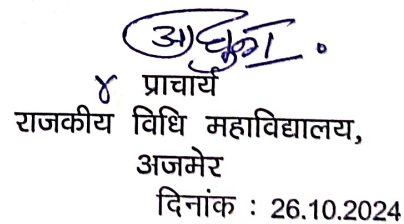 प्राचार्य
राजकीय विधि महाविद्यालय,
अजमेर
दिनांक : 26.10.2024